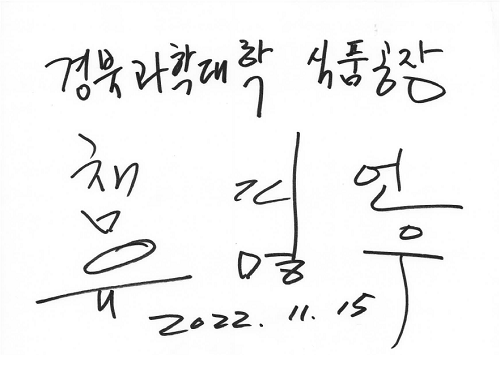 경북과학대학 식품공장
챔피언
유명우
2022. 11. 15